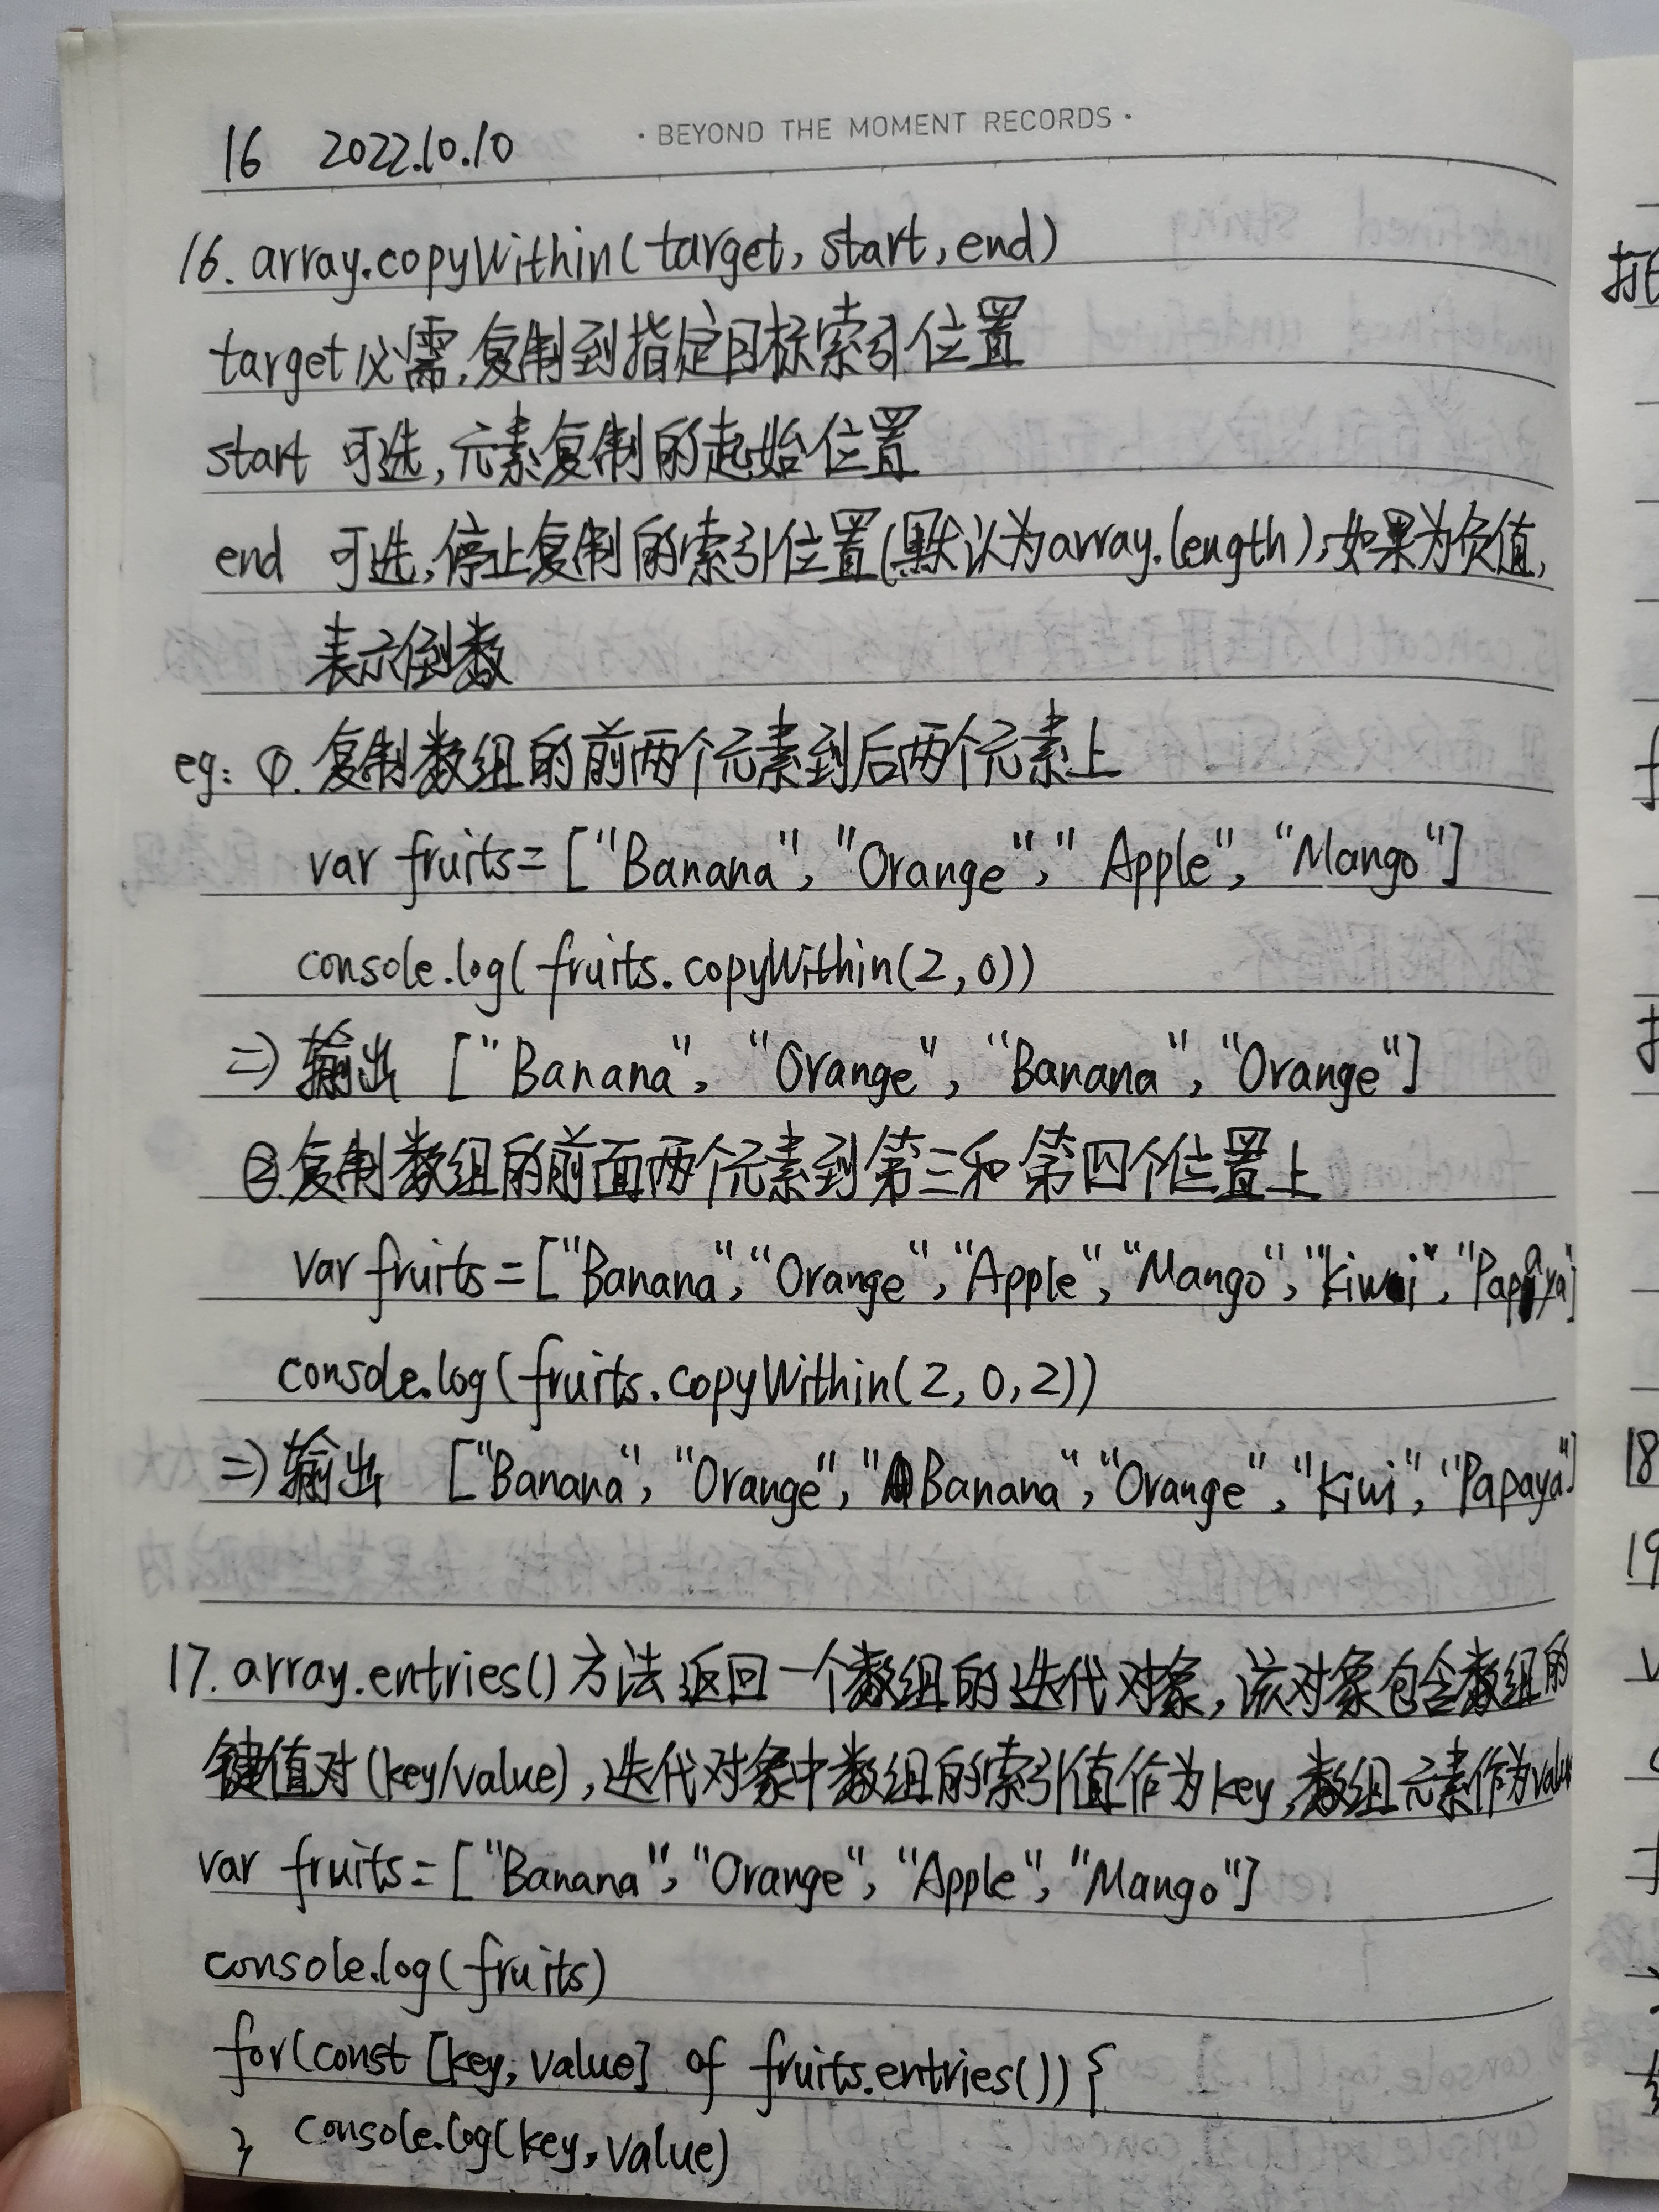 · BEYOND THE MOMENT RECORDS ·
16 2022.10.10
16. array.copyWithin(target, start, end)
target 必需,复制到指定目标索引位置
start 可选,元素复制的起始位置
end 可选,停止复制的索引位置(默认为array.length),如果为负值,
表示倒数
eg: ①. 复制数组的前两个元素到后两个元素上
var fruits = ["Banana", "Orange", "Apple", "Mango"]
console.log(fruits.copyWithin(2,0))
=> 输出 ["Banana", "Orange", "Banana", "Orange"]
②复制数组的前面两个元素到第三和第四个位置上
var fruits = ["Banana", "Orange", "Apple", "Mango", "Kiwi", "Papaya]
console.log(fruits.copyWithin(2, 0, 2))
=> 输出 ["Banana", "Orange", "Banana", "Orange", "Kiwi", "Papaya"]
17. array.entries()方法返回一个数组的迭代对象,该对象包含数组的
键值对(key/value),迭代对象中数组的索引值作为key,数组元素作为value
var fruits = ["Banana", "Orange", "Apple", "Mango"]
console.log(fruits)
for(const [key, value] of fruits.entries()) {
} console.log(key, value)
18
19